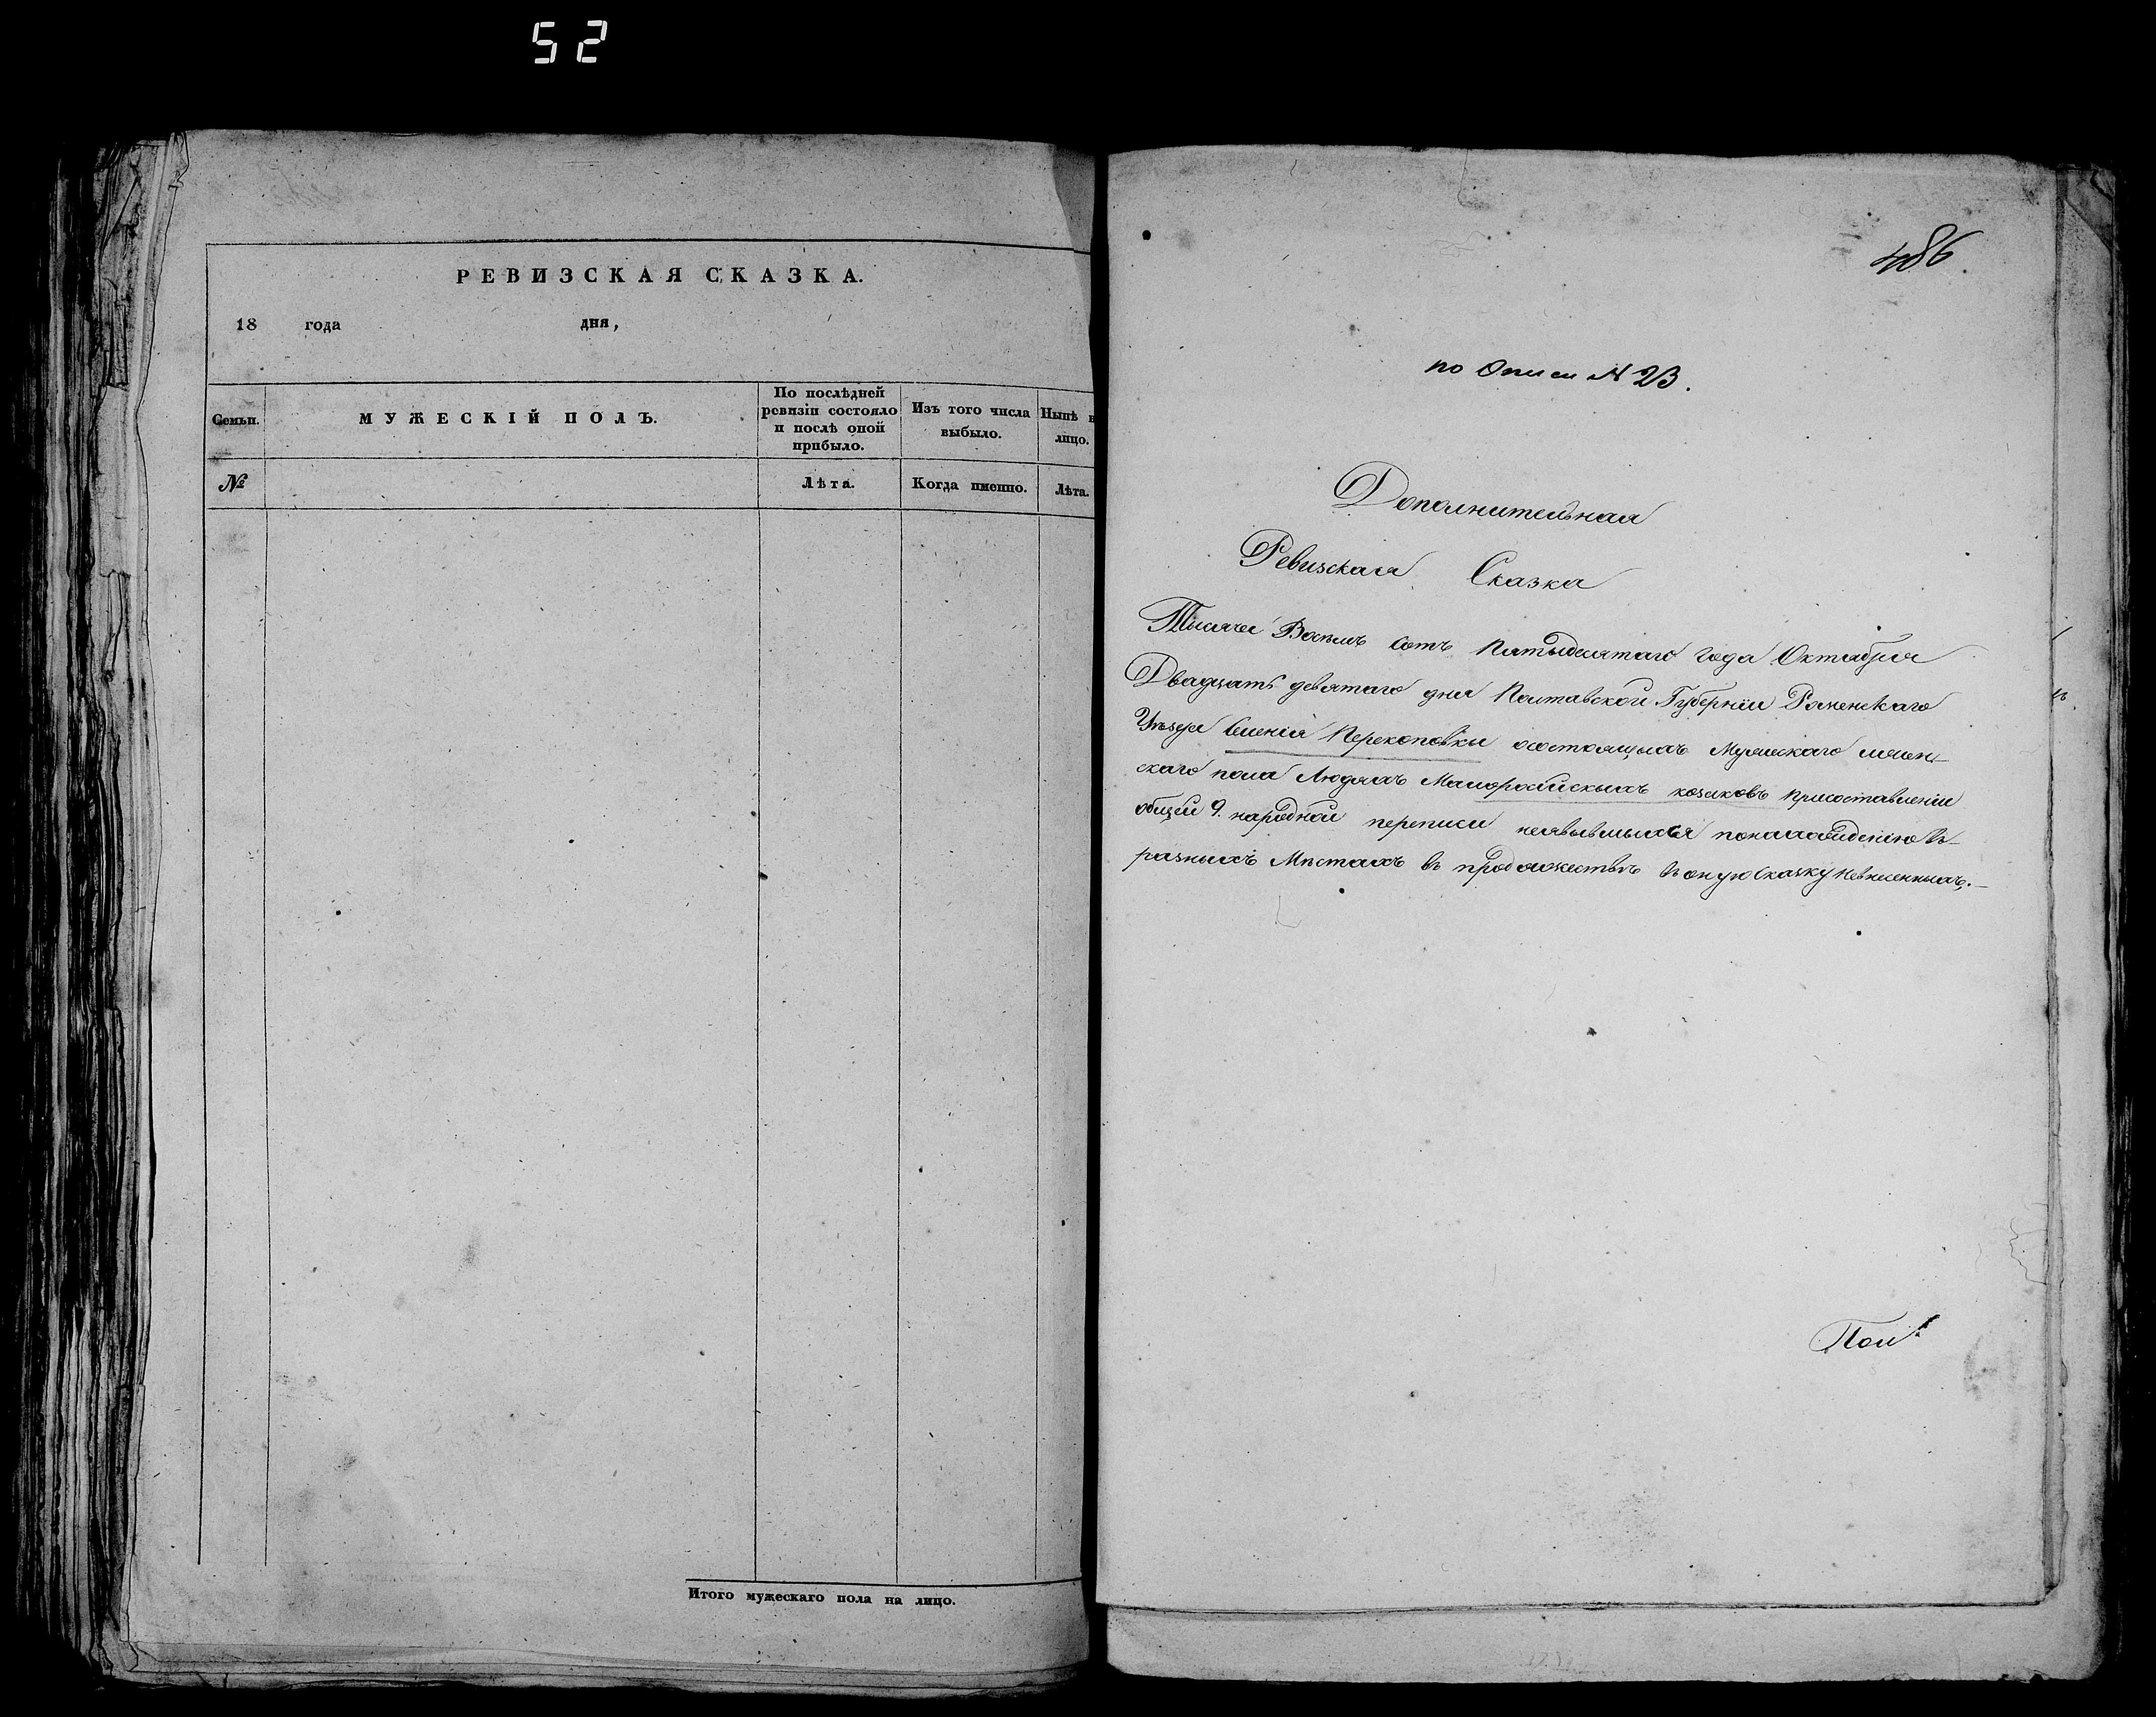 52
РЕВИЗСКАЯ СКАЗКА.
18 года дня,
Семьи.
МУЖЕСКІЙ ПОЛЪ.
По послѣдней
ревизіи состояло
и послѣ оной
прибыло.
Изъ того числа
выбыло.
Нынѣ н
лицо.
№
Лѣта.
Когда именно.
Лѣта.
Итого мужескаго пола на лицо.
486
по Описи № 23.
Дополнительная
Ревизская Сказка
Тысяча Восемь Сотъ Пятьдесятаго года Октября
Двадцать девятаго дня Полтавской Губерніи Роменскаго
Уѣзда Селенія Перекоповки осостоящихъ Мужескаго ижен-
скаго пола Людяхъ Малоросійскихъ козаковъ присоставленіи
общей 9. народной переписи неявывшихся понахождению въ
разныхъ Мѣстахъ въ оную Сказку невнесенныхъ.